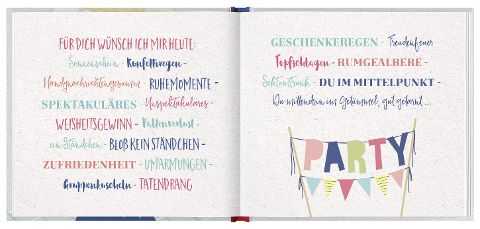 FÜR DICH WÜNSCH ICH MIR HEUTE:
Sonnenschein - Konfettiregen -
Handynachrichtengesumm - RUHEMOMENTE -
SPEKTAKULÄRES - Unspektakuläres -
WEISHEITSGEWINN - Faltenverlust -
ein Ständchen - BLOß KEIN STÄNDCHEN -
ZUFRIEDENHEIT - UMARMUNGEN -
Gruppenkuscheln - TATENDRANG
GESCHENKEREGEN - Freudenfeuer
Topfschlagen - RUMGEALBERE -
Sektumtrunk - DU IM MITTELPUNKT -
Du mittendrin im Getümmel, gut gelaunt...
PARTY